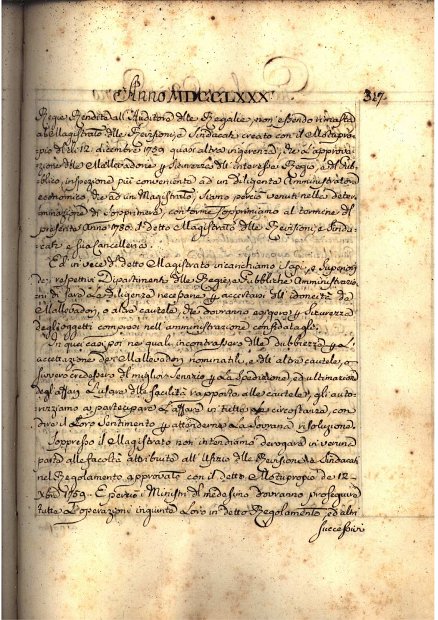 Anno MDCCLXXX.
317.
Regie Rendite all'Auditore delle Regalie, non essendo rimasta
al Magistrato delle Revisioni, e Sindacati creato con il Motupro-
pio de' 12. dicembre 1769. quasi altra ingerenza, che l'approva-
zione delle Mallevadorie, e sicurezze dell'interesse Regio, e del Pub-
blico, inspezione più conveniente ad un diligente Amministratore
economico, che ad un Magistrato, siamo perciò venuti nella deter-
minazione di sopprimere, conforme sopprimiamo al termine del
presente Anno 1780. il detto Magistrato delle Revisioni e Sinda-
cati, e sua Cancelleria.
Ed in vece di detto Magistrato incarichiamo i Capi, e Superiori
de' respettivi Dipartimenti delle Regie, e Pubbliche Amministrazio-
ni di fare le diligenze necessarie p accertarsi dell'idoneità de'
Mallevadori, o altre cautele, che dovranno esigere p sicurezza
degli oggetti compresi nell'amministrazione confidatagli.
In quei casi poi nei quali incontrassero delle dubbiezze p l'
accettazione de' Mallevadori nominatili, e dell'altre cautele, o
pure credessero del miglior servizio p la spedizione, ed ultimazione
degli affari l'usare delle facilità rapporto alle cautele, gli auto-
rizziamo a partecipare l'affare in tutte le circostanze, con
dire il loro sentimento p attenderne la sovrana risoluzione.
Soppresso il Magistrato non intendiamo derogare in veruna
parte alle facoltà attribuite all'Ufizio delle Revisioni, e Sindacati
nel Regolamento approvato con il detto Motupropio de' 12.
Xbre 1769. E perciò i Ministri del medesimo dovranno proseguire
tutte le operazioni ingiunte loro in detto Regolamento, ed altri
successivi